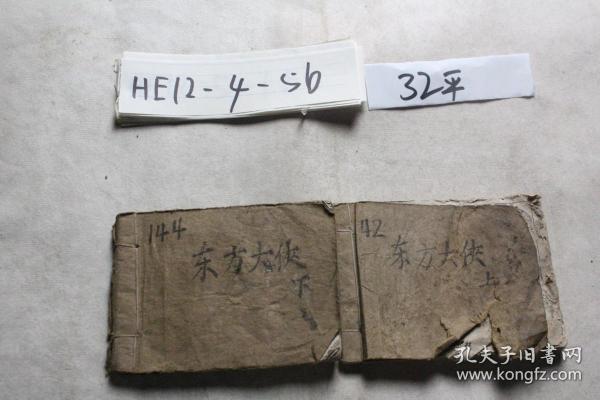 HE12-4-5b
32平
144
东方大侠
下
142
东方大侠
上
孔夫子旧書网
www.kongfz.com